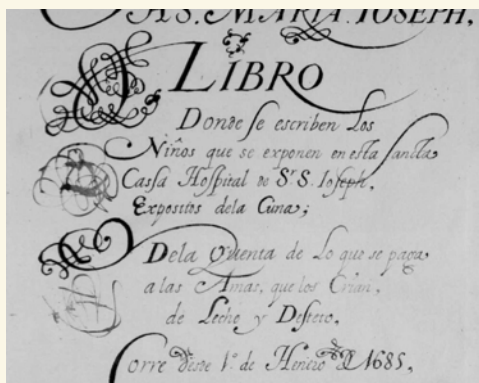 S. MARIA. IOSEPH,
LIBRO
Donde se escriben Los
Niños que se exponen en esta sancta
Cassa Hospital de Sr. S. Ioseph,
Expositos dela Cuna;
Dela Quenta de Lo que se paga
a las Amas, que los Crian,
de Leche y Desteto,
Corre desde 1º. de Henero D 1685,